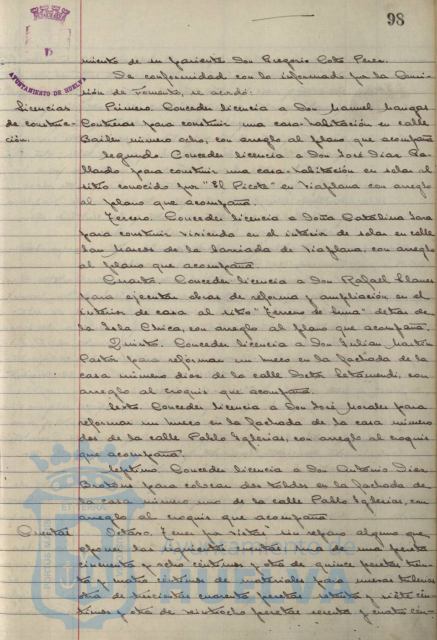 98
AYUNTAMIENTO DE HUELVA
miento de su pariente Don Gregorio Coto Perez.
De conformidad con lo informado por la Comi-
sión de Fomento, se acordó:
Licencias de construc-ción.
Primero. Conceder licencia a Don Manuel
Contreras para construir una casa-habitación en calle
Bailén número ocho, con arreglo al plano que acompaña
Segundo. Conceder licencia a Don José Diaz Ga-
llardo para construir una casa-habitación en solar al
sitio conocido por "El Picote" en Viaplana con arreglo
al plano que acompaña.
Tercero. Conceder licencia a Doña Catalina Lara
para construir vivienda en el interior de solar en calle
San Marcos de la barriada de Viaplana, con arreglo
al plano que acompaña.
Cuarto. Conceder licencia a Don Rafael Llanes
para ejecutar obras de reforma y ampliación en el
interior de casa al sitio "Terreno de" detras de
la Isla Chica, con arreglo al plano que acompaña.
Quinto. Conceder licencia a Don Julian Martín
Pastor para reformar un hueco en la fachada de la
casa número diez de la calle Beta Letamendi, con
arreglo al croquis que acompaña.
Sexto. Conceder licencia a Don José Morales para
reformar un hueco en la fachada de la casa número
dos de la calle Pablo Iglesias, con arreglo al croquis
que acompaña.
Septimo. Conceder licencia a Don Antonio Diaz
para colocar dos toldos en la fachada de
la casa número uno de la calle Pablo Iglesias, con
arreglo al croquis que acompaña
Cuentas
Octavo. Tener por vistas sin reparo alguno que
oponer las siguientes cuentas: una de una peseta
cincuenta y ocho céntimos y otra de quince pesetas trein-
ta y cuatro céntimos de materiales para
otra de trescientas cuarenta pesetas setenta y siete cén-
timos y otra de veintiocho pesetas sesenta y cuatro cén-